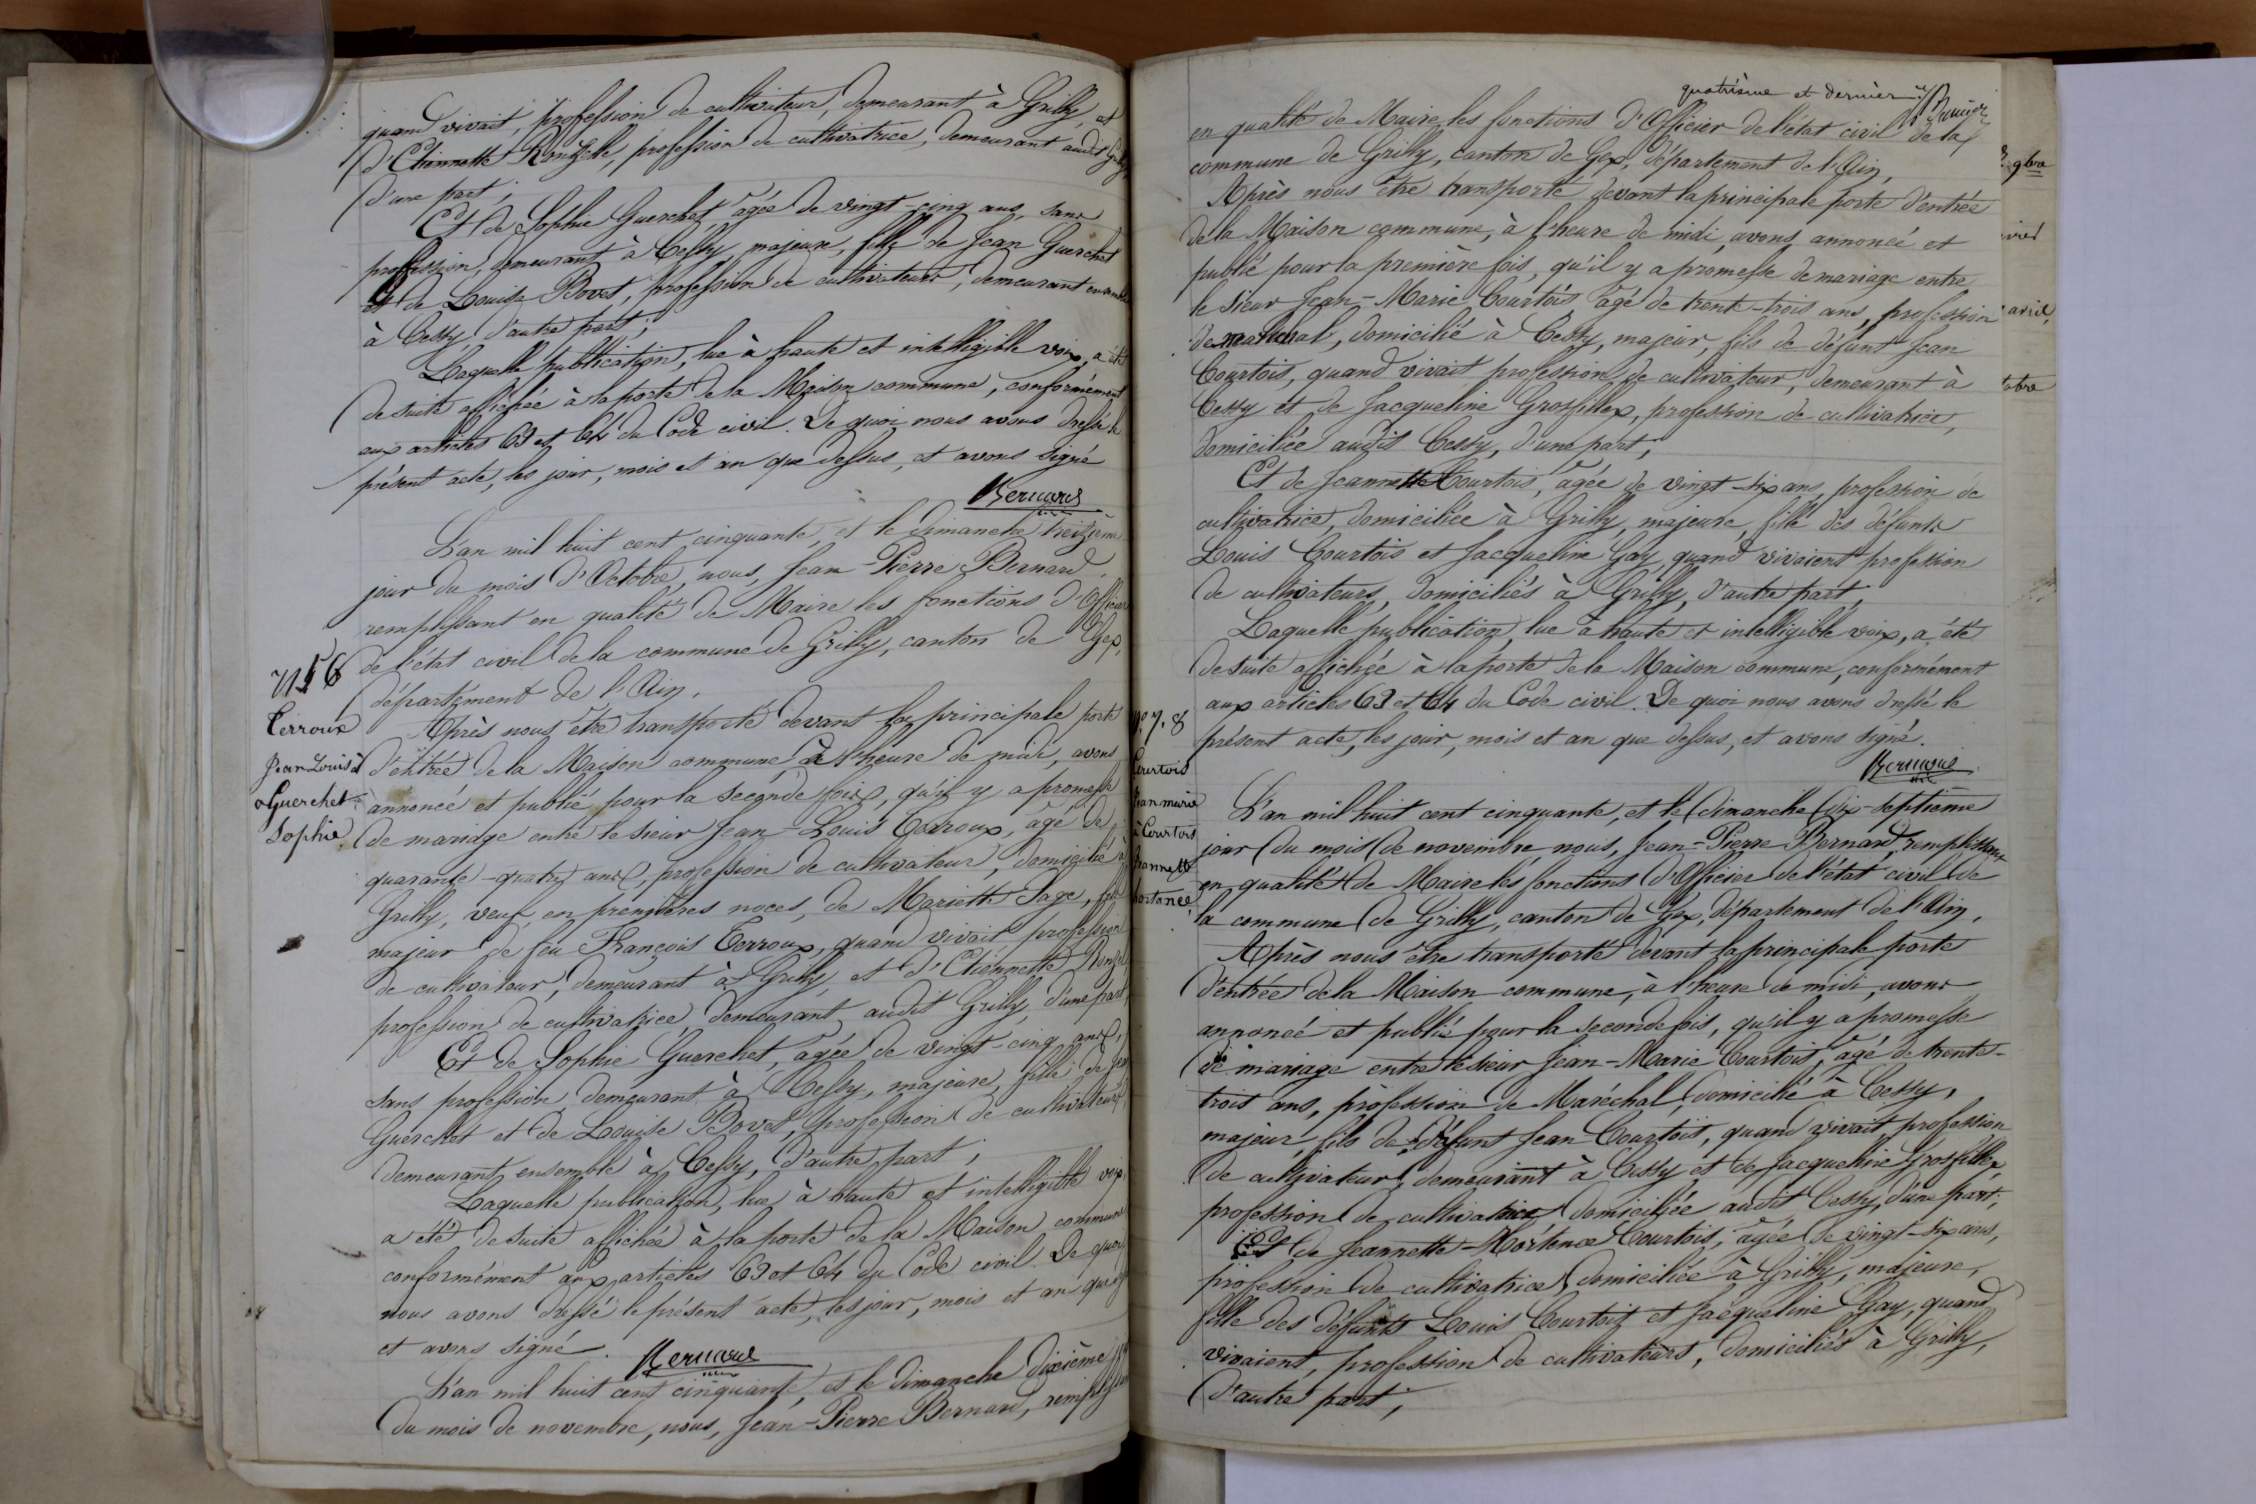 quand vivait, profession de cultivateur, demeurant à Grilly, et
d'Etiennette Ronzelle, profession de cultivatrice, demeurant audit Grilly
d'une part;
Et de Sophie Guerchet, âgée de vingt-cinq ans, sans
profession, demeurant à Cessy, majeure, fille de Jean Guerchet
et de Louise Bovet, profession de cultivateurs, demeurant ensemble
à Cessy, d'autre part;
Laquelle publication, lue à haute et intelligible voix, a été
de suite affichée à la porte de la Maison commune, conformément
aux articles 63 et 64 du Code civil. De quoi nous avons dressé le
présent acte, les jour, mois et an que dessus, et avons signé
Bernard
L'an mil huit cent cinquante, et le dimanche treizième
jour du mois d'Octobre, nous, Jean-Pierre Bernard,
remplissant en qualité de Maire les fonctions d'Officier
de l'état civil de la commune de Grilly, canton de Gex,
département de l'Ain.
N° 56
Terroux
Jean Louis à
Guerchet
Sophie.
Après nous être transporté devant la principale porte
d'entrée de la Maison commune, à l'heure de midi, avons
annoncé et publié pour la seconde fois, qu'il y a promesse
de mariage entre le sieur Jean-Louis Terroux, âgé de
quarante-quatre ans, profession de cultivateur, domicilié à
Grilly, veuf, en premières noces, de Mariette Sage, fils
majeur de feu François Terroux, quand vivait profession
de cultivateur, demeurant à Grilly, et d'Etiennette
profession de cultivatrice, demeurant audit Grilly, d'une part,
Et de Sophie Guerchet, âgée de vingt-cinq ans,
sans profession, demeurant à Cessy, majeure, fille de Jean
Guerchet et de Louise Bovet, profession de cultivateurs,
demeurant ensemble à Cessy, d'autre part;
Laquelle publication, lue à haute et intelligible voix,
a été de suite affichée à la porte de la Maison commune
conformément aux articles 63 et 64 du Code civil. De quoi
nous avons dressé le présent acte, les jour, mois et an que
et avons signé.
Bernard
L'an mil huit cent cinquante, et le dimanche dixième jour
du mois de novembre, nous, Jean-Pierre Bernard, remplissant
quatrième et dernier
en qualité de Maire les fonctions d'Officier de l'état civil de la
commune de Grilly, canton de Gex, département de l'Ain,
Après nous être transporté devant la principale porte d'entrée
de la Maison commune, à l'heure de midi, avons annoncé et
publié pour la première fois, qu'il y a promesse de mariage entre
le sieur Jean-Marie Courtois âgé de trente-trois ans, profession
de maréchal, domicilié à Cessy, majeur, fils de défunt Jean
Courtois, quand vivait profession de cultivateur, demeurant à
Cessy et de Jacqueline Grosfillex, profession de cultivatrice,
domiciliée audit Cessy, d'une part;
Et de Jeannette Courtois, âgée de vingt-six ans, profession de
cultivatrice, domiciliée à Grilly, majeure, fille des défunts
Louis Courtois et Jacqueline Gay, quand vivaient profession
de cultivateurs, domiciliés à Grilly, d'autre part;
Laquelle publication, lue à haute et intelligible voix, a été
de suite affichée à la porte de la Maison commune, conformément
aux articles 63 et 64 du Code civil. De quoi nous avons dressé le
présent acte, les jour, mois et an que dessus, et avons signé.
Bernard
N° 7. 8
Courtois
Jean marie
à Courtois
Jeannette
hortance
L'an mil huit cent cinquante, et le dimanche dix-septième
jour du mois de novembre nous, Jean-Pierre Bernard, remplissant
en qualité de Maire les fonctions d'Officier de l'état civil de
la commune de Grilly, canton de Gex, département de l'Ain,
Après nous être transporté devant la principale porte
d'entrée de la Maison commune, à l'heure de midi, avons
annoncé et publié pour la seconde fois, qu'il y a promesse
de mariage entre le sieur Jean-Marie Courtois, âgé de trente-
trois ans, profession de Maréchal, domicilié à Cessy,
majeur, fils de défunt Jean Courtois, quand vivait profession
de cultivateur, demeurant à Cessy et de Jacqueline Grosfillex,
profession de cultivatrice domiciliée audit Cessy, d'une part;
Et de Jeannette-Hortence Courtois, âgée de vingt-six ans,
profession de cultivatrice, domiciliée à Grilly, majeure,
fille des défunts Louis Courtois et Jacqueline Gay, quand
vivaient, profession de cultivateurs, domiciliés à Grilly,
d'autre part;
avril,